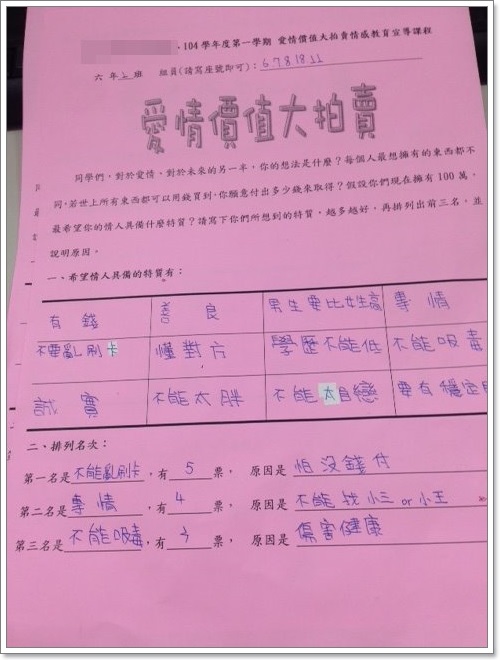 104 學年度第一學期 愛情價值大拍賣情感教育宣導課程
六 年 班 組員(請寫座號即可):6 7 8 18 22
愛情價值大拍賣
同學們,對於愛情、對於未來的另一半,你的想法是什麼?每個人最想擁有的東西都不
同,若世上所有東西都可以用錢買到,你願意付出多少錢來取得?假設你們現在擁有 100 萬,
最希望你的情人具備什麼特質?請寫下你們所想到的特質,越多越好,再排列出前三名,並
說明原因。
一、希望情人具備的特質有:
有錢 善良 男生要比女生高 專情
不要亂刷卡 懂對方 學歷不能低 不能吸毒
誠實 不能太胖 不能太自戀 要有穩定
二、排列名次:
第一名是不能亂刷卡,有 5 票, 原因是 怕沒錢付
第二名是專情,有 4 票, 原因是 不能找小三or小王
第三名是不能吸毒,有 3 票, 原因是 傷害健康